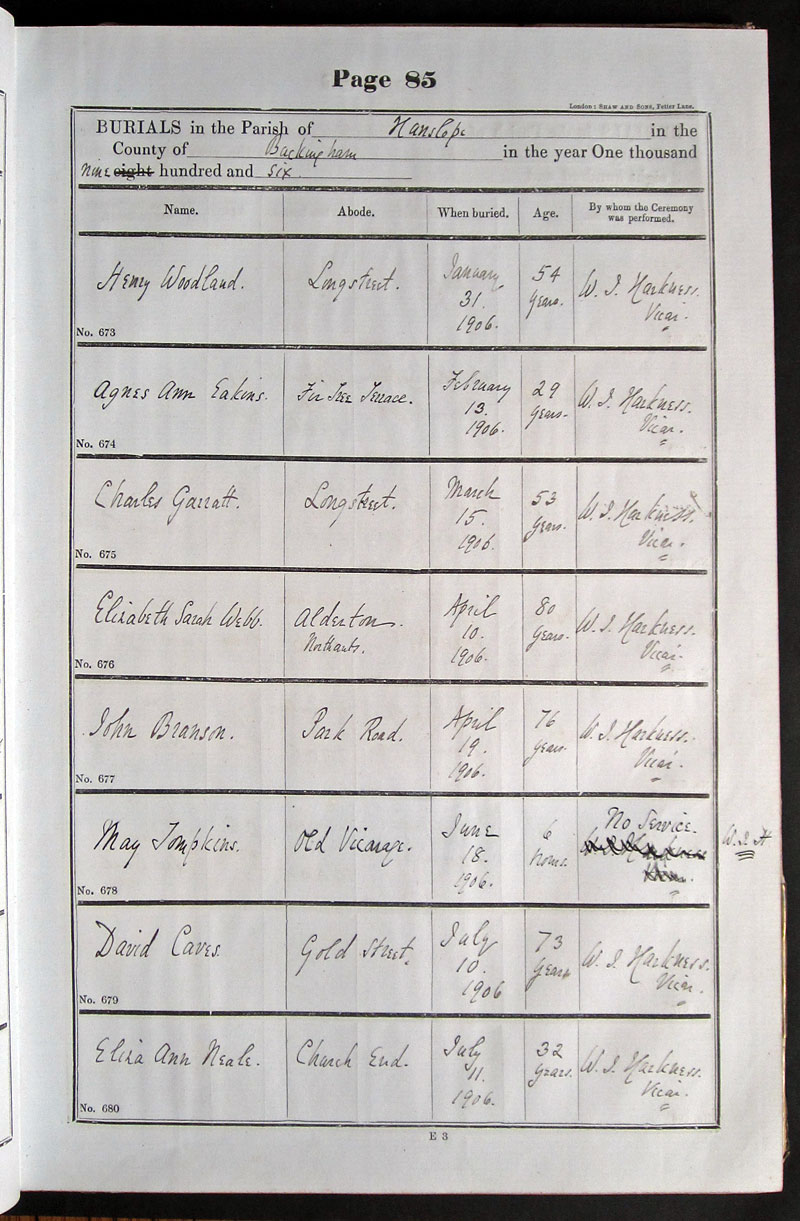 Page 85
London : SHAW AND SONS, Fetter Lane.
BURIALS in the Parish of Hanslope in the
County of Buckingham in the year One thousand
nine eight hundred and six.
Name. Abode. When buried. Age. By whom the Ceremony was performed.
Henry Woodland. Longstreet. January 31. 1906. 54 years. W. J. Harkness. Vicar.
No. 673
Agnes Ann Eakins. Fir Tree Terrace. February 13. 1906. 29 years. W. J. Harkness. Vicar.
No. 674
Charles Garratt. Longstreet. March 15. 1906. 53 years. W. J. Harkness. Vicar.
No. 675
Elizabeth Sarah Webb. Alderton. Northants. April 10. 1906. 80 years. W. J. Harkness. Vicar.
No. 676
John Branson. Park Road. April 19. 1906. 76 years. W. J. Harkness. Vicar.
No. 677
May Tompkins. Old Vicarage. June 18. 1906. 6 hours. No Service. W. J. H
No. 678
David Caves. Gold Street. July 10. 1906 73 years W. J. Harkness. Vicar.
No. 679
Eliza Ann Neale. Church End. July 11. 1906. 32 years. W. J. Harkness. Vicar.
No. 680
E 3